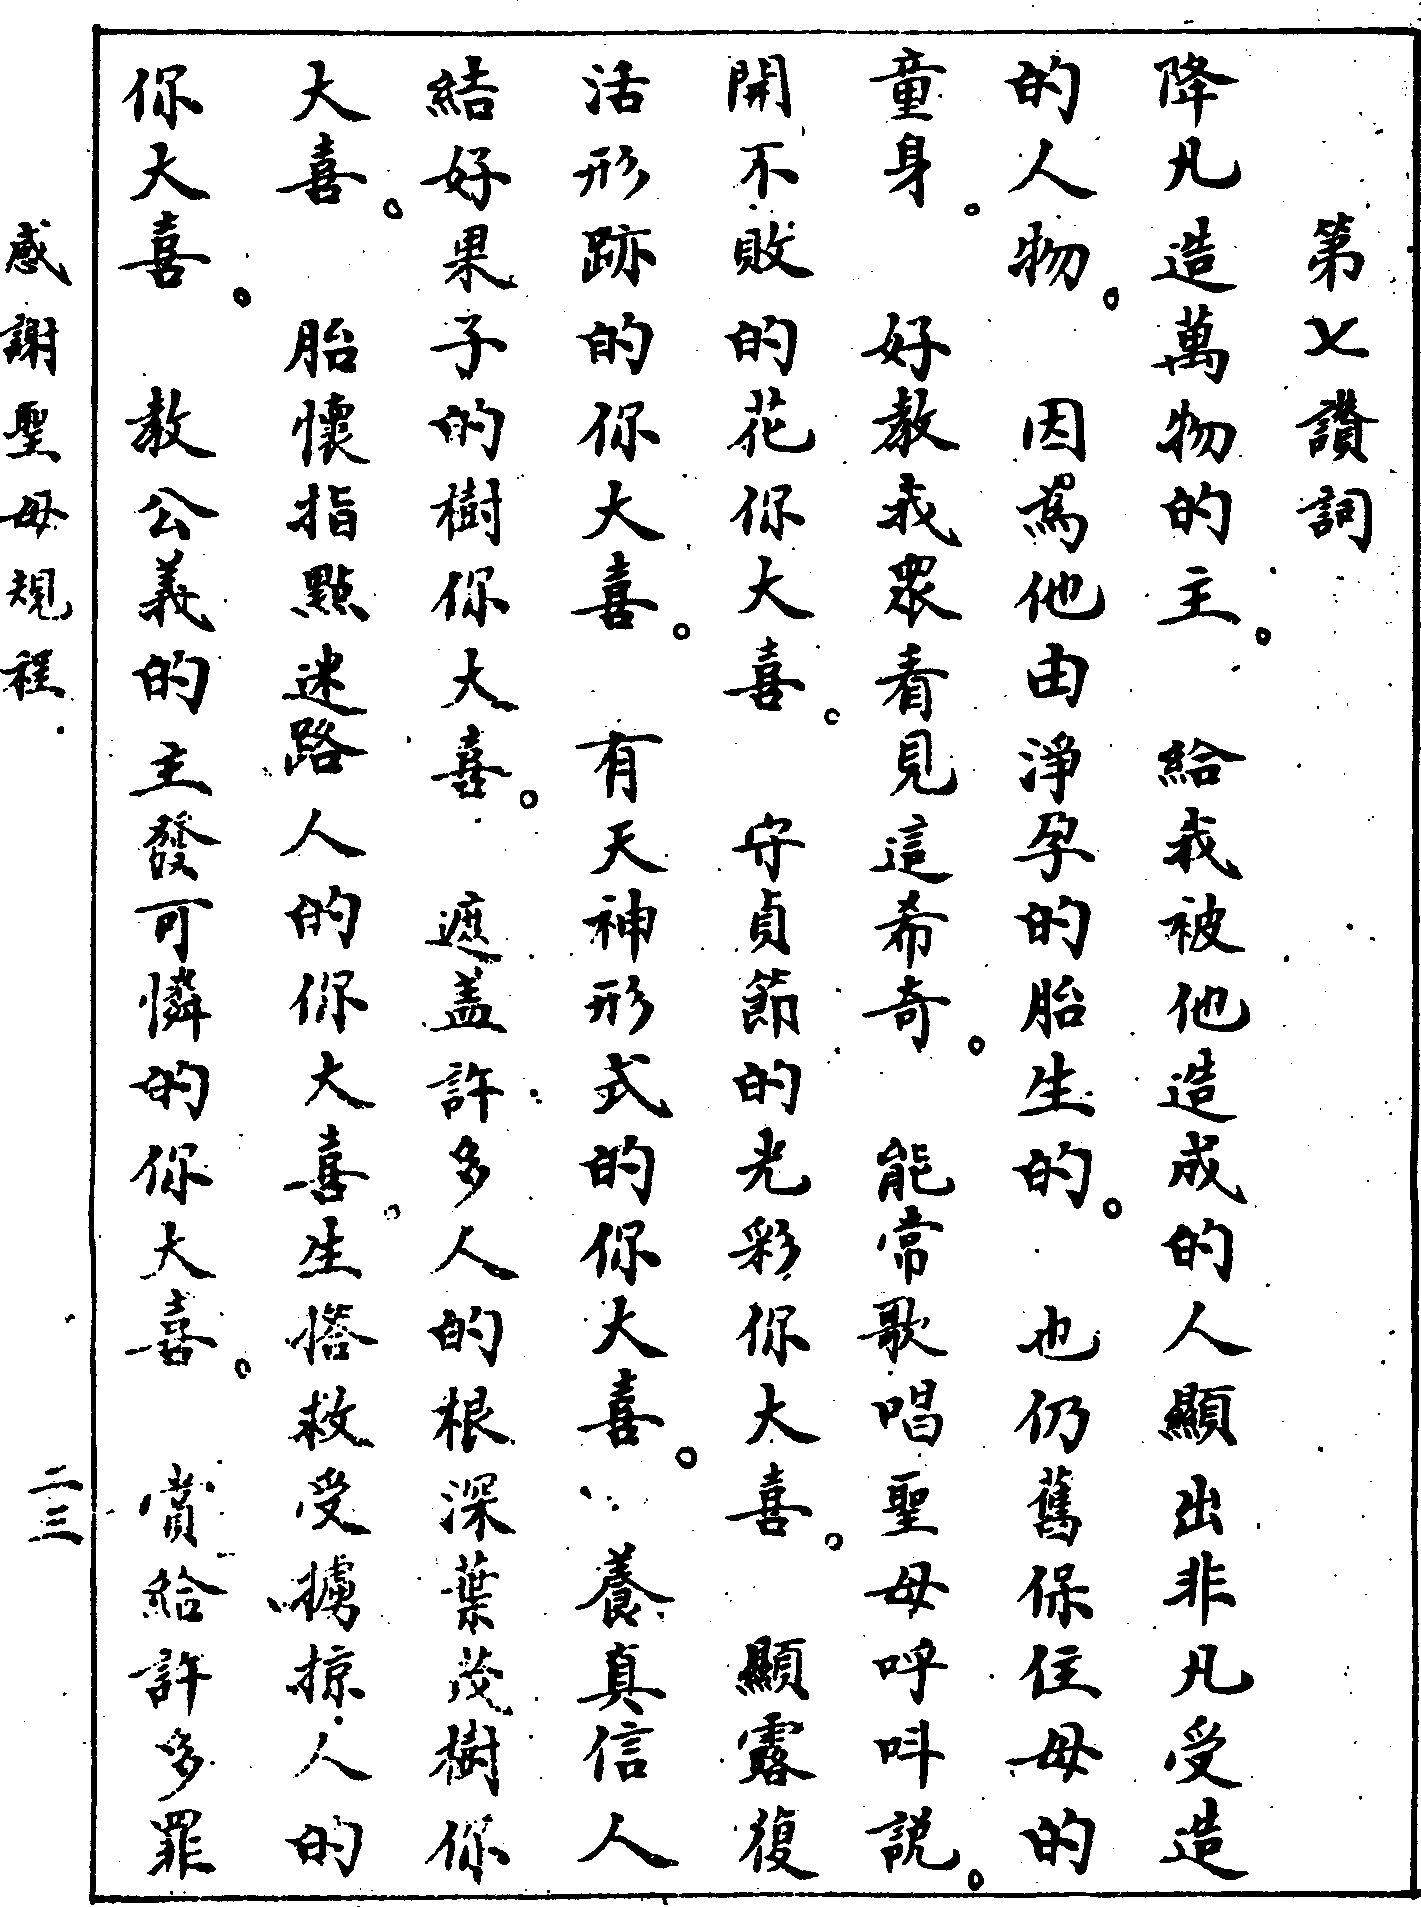 第七讚詞
降凡造萬物的主。　給我被他造成的人顯出非凡受造
的人物。　因爲他由淨孕的胎生的。　也仍舊保住母的
童身。　好教我眾看見這希奇。　能常歌唱聖母呼呌説。
開不敗的花你大喜。　守貞節的光彩你大喜。　顯露復
活形跡的你大喜。　有天神形式的你大喜。　養真信人
結好果子的樹你大喜。　遮盖許多人的根深葉茂樹你
大喜。　胎懷指點迷路人的你大喜。生搭救受擄掠人的
你大喜。　教公義的主發可憐的你大喜。　賞給許多罪
感謝聖母規程
二三